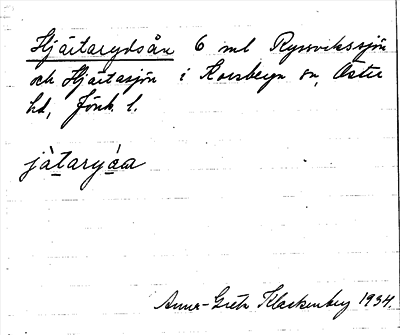 Hjärtarydsån 6 ml Ryssvikssjön
och Hjärtasjön i Korsberga sn, Östra
hd, Jönk. l.
jàtarýåa
Anna-Greta Klackenberg 1934.